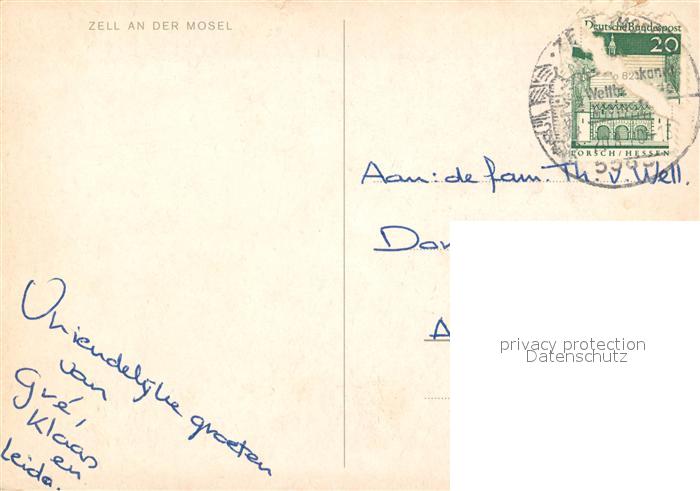 ZELL AN DER MOSEL
Deutsche Bundespost
20
LORSCH/HESSEN
Aan: de fam. Th. v. Well.
Vriendelijke groeten
van
Gré,
Klaas
en
Leida.
privacy protection
Datenschutz